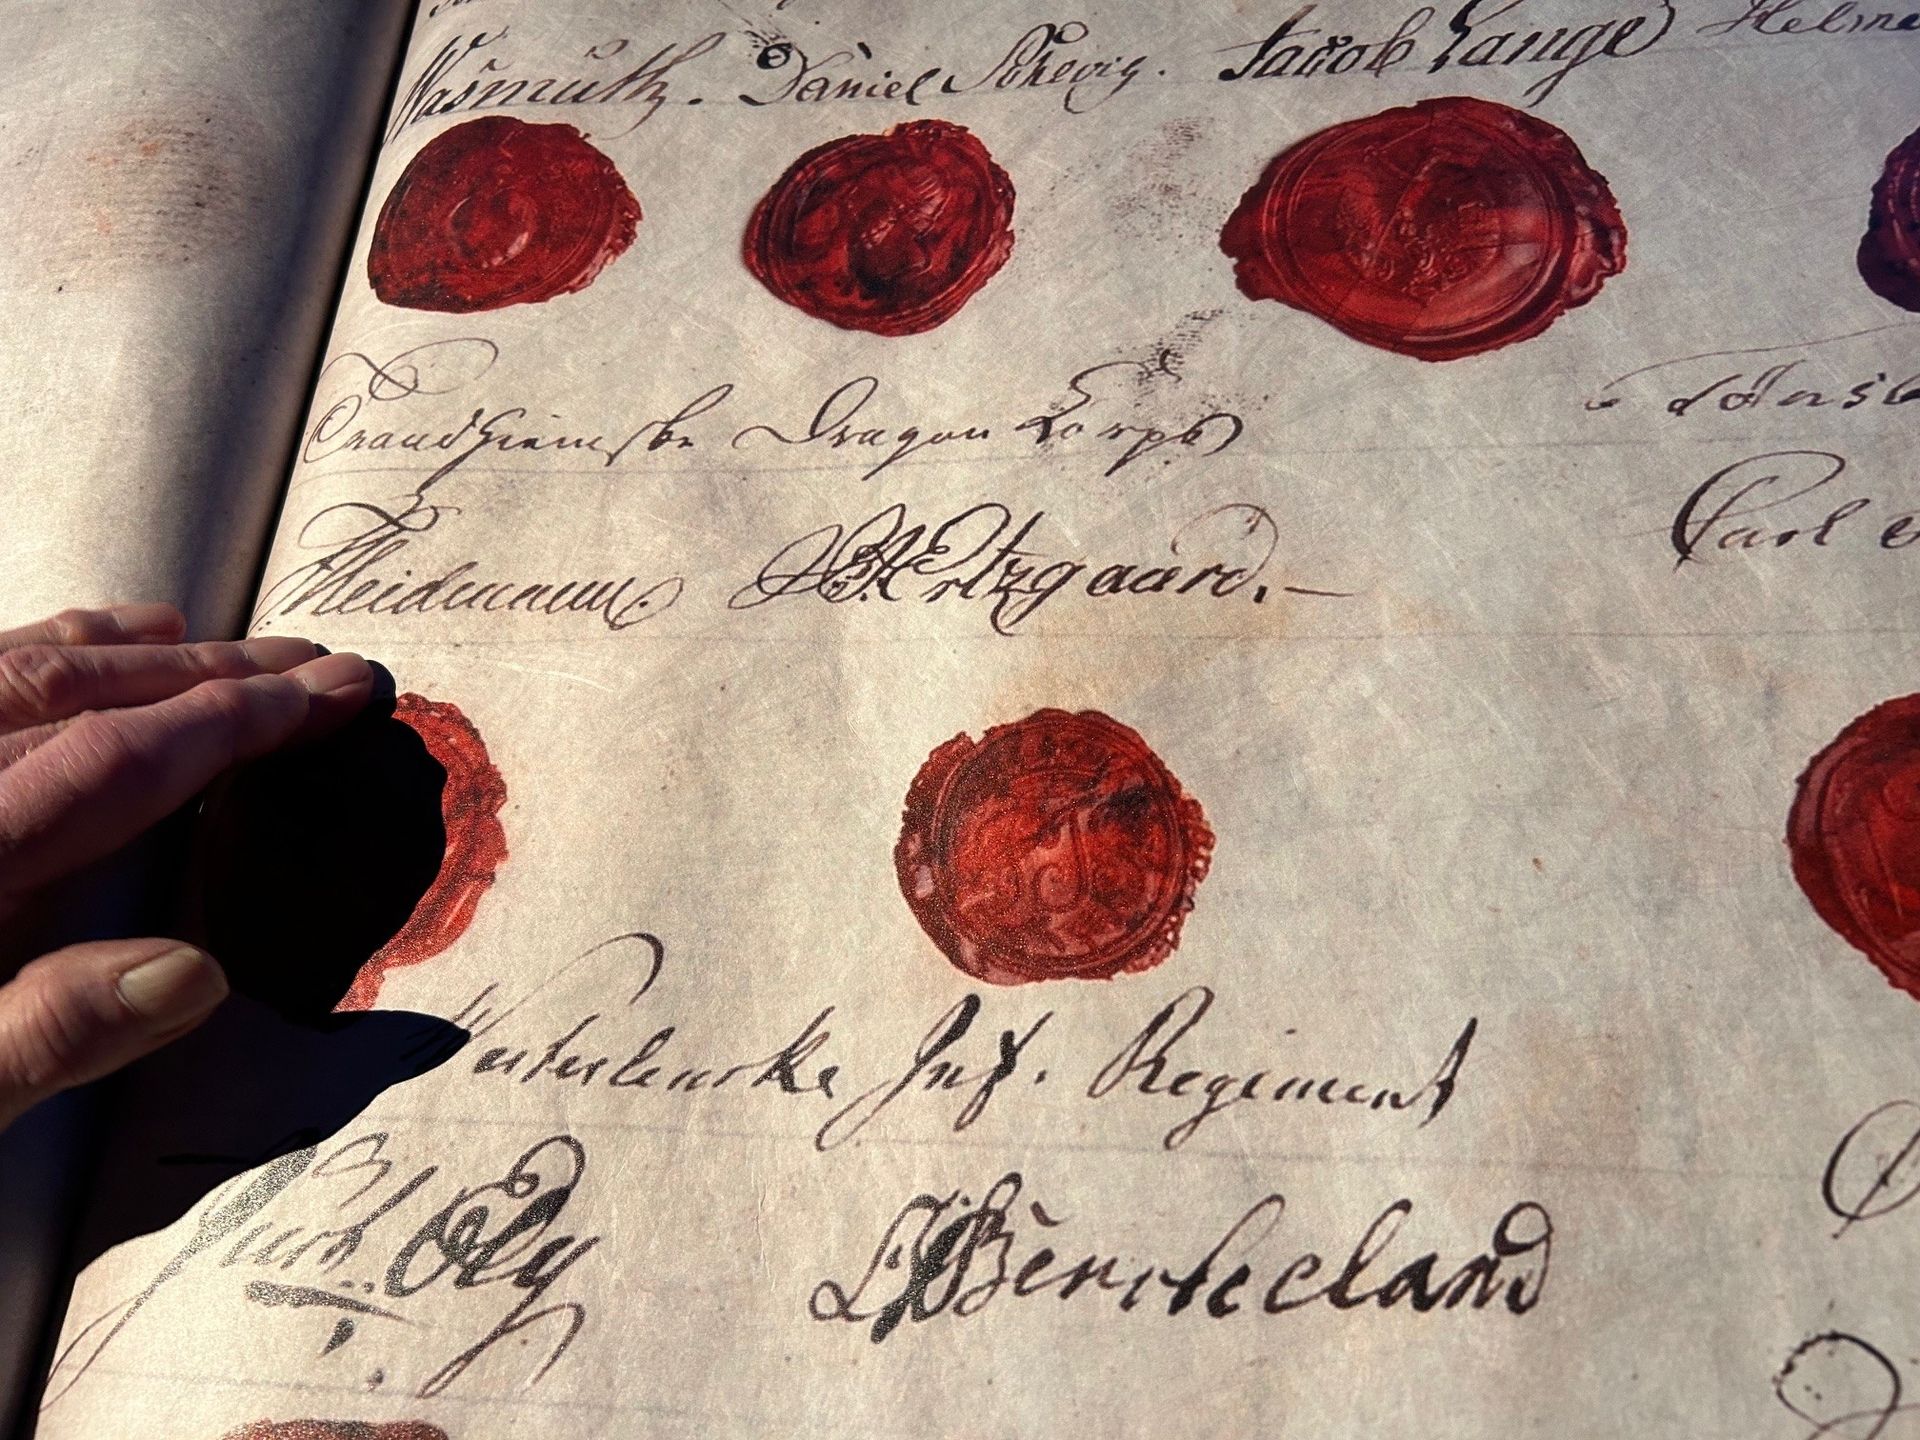 Wasmuth. Daniel Schevig. Jacob Lange Helme
Trondhiemske Dragon Korps
Heidmann. Ertzgaard.
Carl
Westerlenske Inf. Regiment
Jacob Erly L. Bercheland